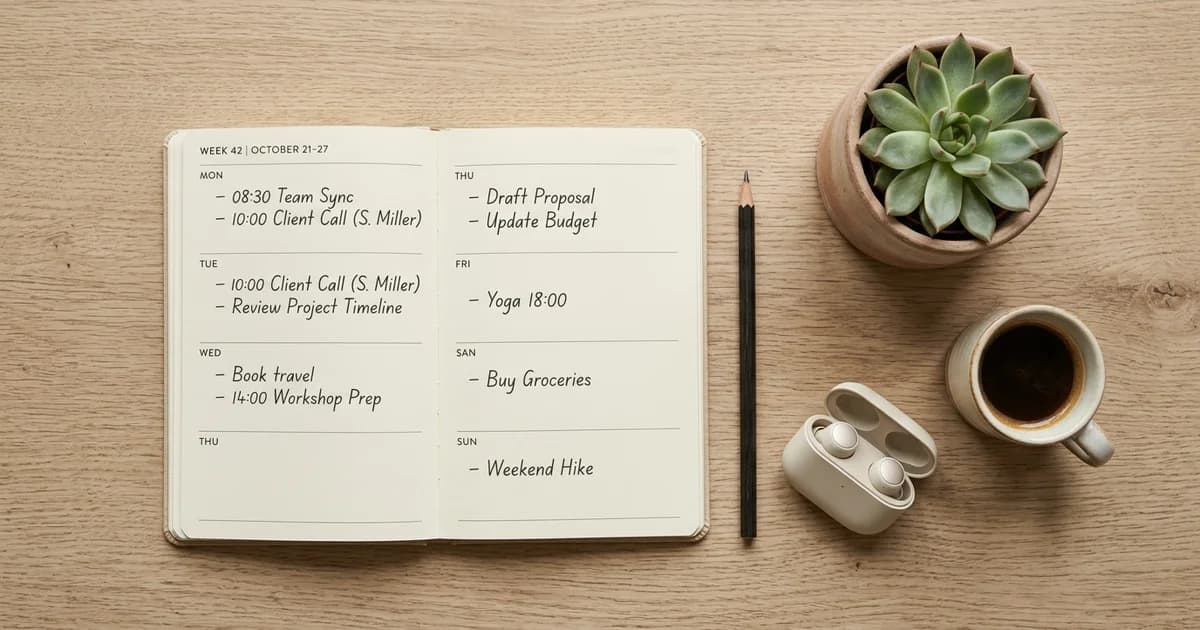 WEEK 42 | OCTOBER 21-27
MON
- 08:30 Team Sync
- 10:00 Client Call (S. Miller)
TUE
- 10:00 Client Call (S. Miller)
- Review Project Timeline
WED
- Book travel
- 14:00 Workshop Prep
THU
THU
- Draft Proposal
- Update Budget
FRI
- Yoga 18:00
SAN
- Buy Groceries
SUN
- Weekend Hike